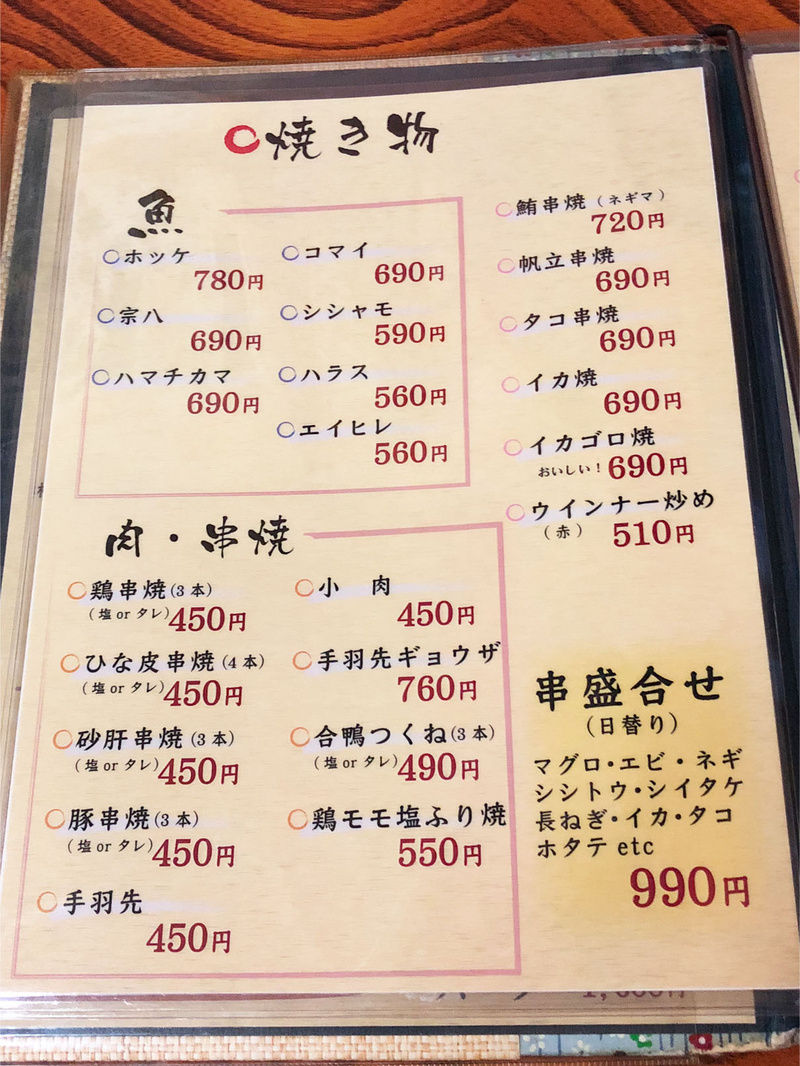 焼き物
魚
ホッケ
780円
宗八
690円
ハマチカマ
690円
コマイ
690円
シシャモ
590円
ハラス
560円
エイヒレ
560円
鮪串焼(ネギマ)
720円
帆立串焼
690円
タコ串焼
690円
イカ焼
690円
イカゴロ焼
おいしい!690円
ウインナー炒め
(赤) 510円
肉・串焼
鶏串焼(3本)
(塩orタレ)450円
ひな皮串焼(4本)
(塩orタレ)450円
砂肝串焼(3本)
(塩orタレ)450円
豚串焼(3本)
(塩orタレ)450円
手羽先
450円
小 肉
450円
手羽先ギョウザ
760円
合鴨つくね(3本)
(塩orタレ)490円
鶏モモ塩ふり焼
550円
串盛合せ
(日替り)
マグロ・エビ・ネギ
シシトウ・シイタケ
長ねぎ・イカ・タコ
ホタテ etc
990円